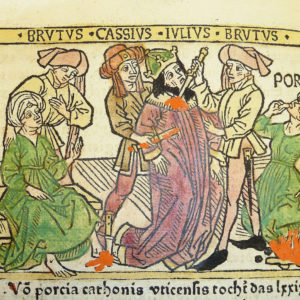 · BRVTVS · CASSIVS · IVLIVS · BRVTVS ·
POR
. Võ porcia cathonis vticensis tocht̄ das lxxi